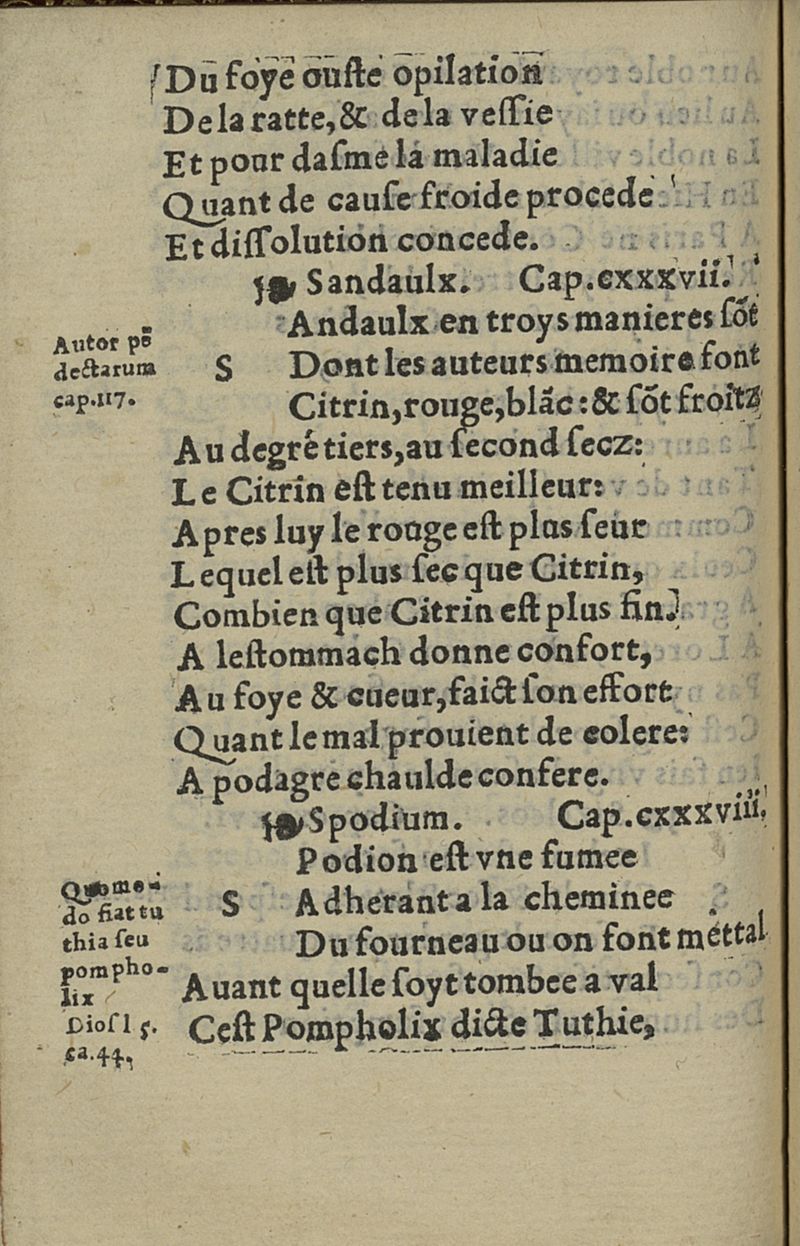 Du foye ouſte opilation
De la ratte, & de la veſſie
Et pour daſme la maladie
Quant de cauſe froide procede
Et diſſolution concede.
Sandaulx. Cap.cxxxvii.
Autor pē
dectarum
cap.117.
S
Andaulx en troys manieres ſõt
Dont les auteurs memoire font
Citrin, rouge, blãc: & ſõt froitz
Au degré tiers, au ſecond ſecz:
Le Citrin eſt tenu meilleur:
Apres luy le rouge eſt plus ſeur
Lequel eſt plus ſec que Citrin,
Combien que Citrin eſt plus fin.
A leſtommach donne confort,
Au foye & cueur, faict ſon effort
Quant le mal prouient de colere:
A podagre chaulde confere.
Spodium. Cap.cxxxviii.
Quomo-
do fiat tu
thia ſeu
pompho-
lix
Dioſ l 5.
ca.44.
S
Podion eſt vne fumee
Adherant a la cheminee
Du fourneau ou on font mettal
Auant quelle ſoyt tombee a val
Ceſt Pompholix dicte Tuthie,